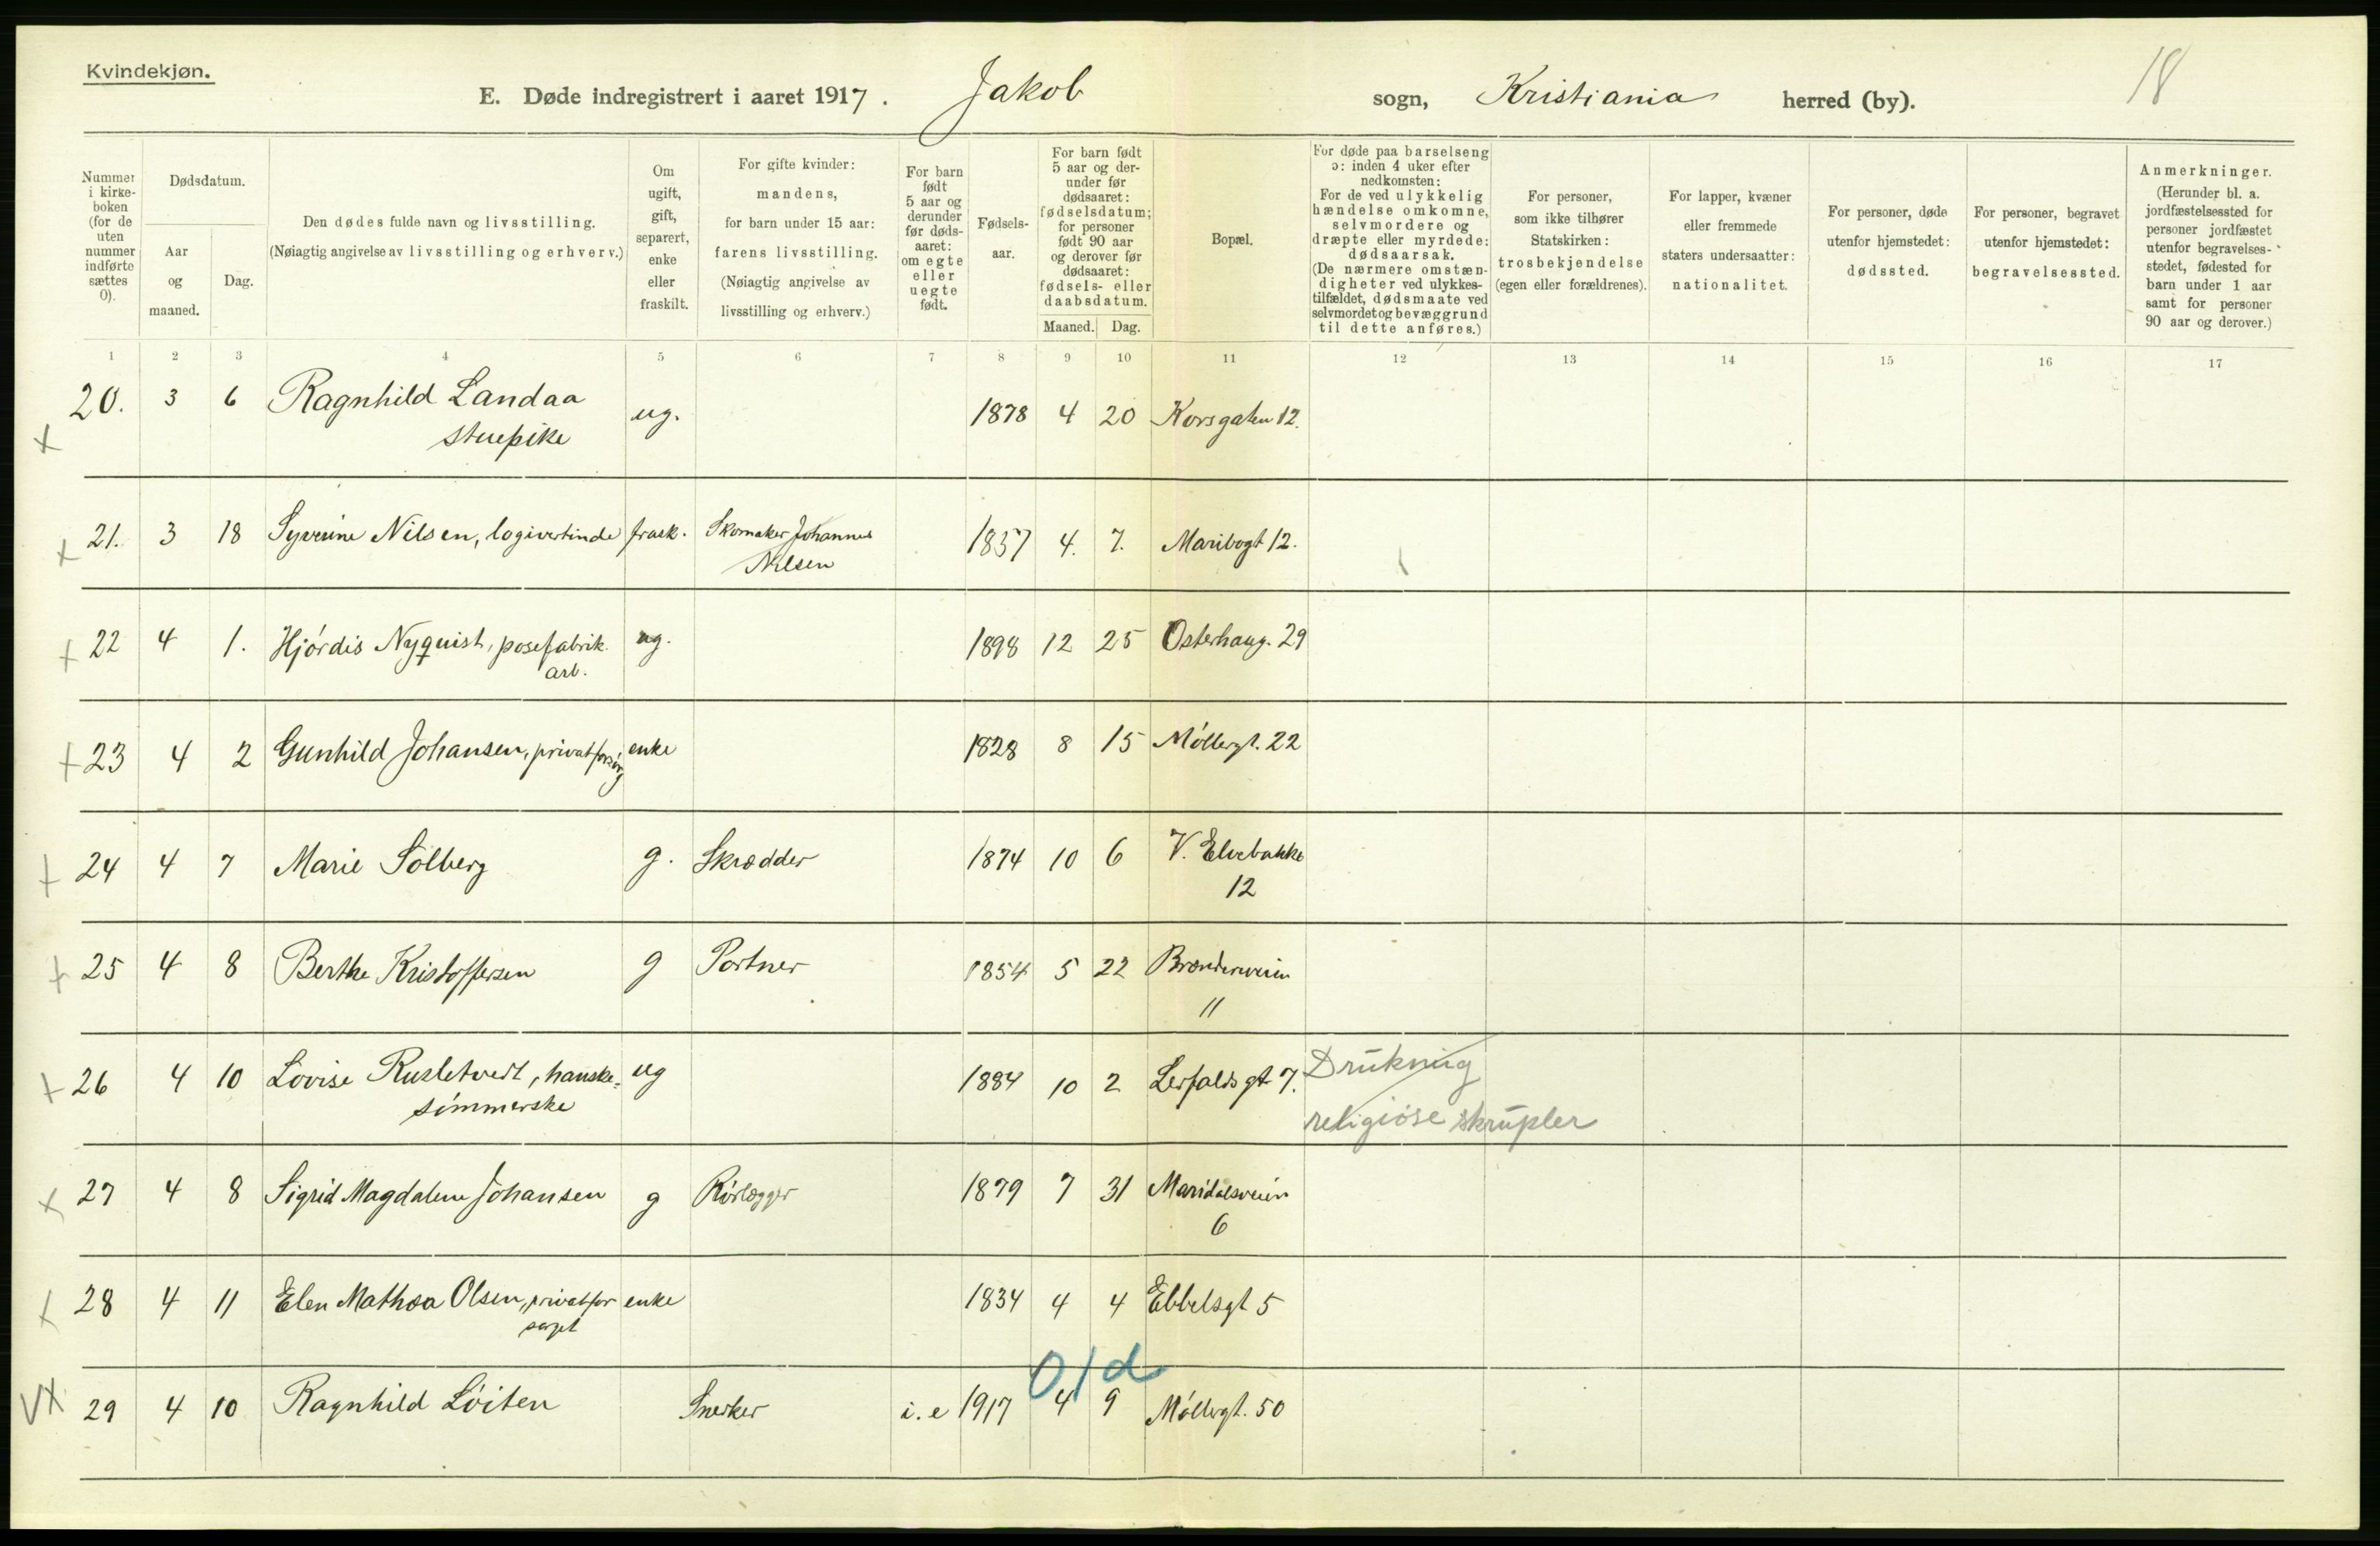 Kvindekjøn.
E. Døde indregistrert i aaret 1917. Jakob sogn, Kristiania herred (by).
18
Nummer i kirke-boken (for de uten nummer indførte sættes 0).
Dødsdatum.
Aar og maaned.
Dag.
Den dødes fulde navn og livsstilling.
(Nøiagtig angivelse av livsstilling og erhverv.)
Om ugift, gift, separert, enke eller fraskilt.
For gifte kvinder: mandens, for barn under 15 aar: farens livsstilling. (Nøiagtig angivelse av livsstilling og erhverv.)
For barn født 5 aar og derunder før døds-aaret: om egte eller uegte født.
Fødsels-aar.
For barn født 5 aar og der-under før dødsaaret: fødselsdatum; for personer født 90 aar og derover før dødsaaret: fødsels- eller daabsdatum.
Maaned. Dag.
Bopæl.
For døde paa barselseng ɔ: inden 4 uker efter nedkomsten: For de ved ulykkelig hændelse omkomne, selvmordere og dræpte eller myrdede: dødsaarsak. (De nærmere omstæn-digheter ved ulykkes-tilfældet, dødsmaate ved selvmordet og bevæggrund til dette anføres.)
For personer, som ikke tilhører Statskirken: trosbekjendelse (egen eller forældrenes).
For lapper, kvæner eller fremmede staters undersaatter: nationalitet.
For personer, døde utenfor hjemstedet: dødssted.
For personer, begravet utenfor hjemstedet: begravelsessted.
Anmerkninger. (Herunder bl. a. jordfæstelsessted for personer jordfæstet utenfor begravelses-stedet, fødested for barn under 1 aar samt for personer 90 aar og derover.)
1 2 3 4 5 6 7 8 9 10 11 12 13 14 15 16 17
20. 3 6 Ragnhild Landaa ug. 1878 4 20 Korsgaten 12.
stuepike
21. 3 18 Syverine Nilsen, logivertinde frask. Skomaker Johannes 1857 4. 7. Maribogt 12.
Nilsen
22 4 1. Hjørdis Nyquist, posefabrik. ug. 1898 12 25 Osterhaug. 29
arb.
23 4 2 Gunhild Johansen, privatforsørg enke 1828 8 15 Møllergt. 22
24 4 7 Marie Solberg g. Skrædder 1874 10 6 V. Elvebakke
12
25 4 8 Berthe Kristoffersen g Portner 1854 5 22
11
26 4 10 Lovise Rusletvedt, hanske- ug 1884 10 2 Lerfaldsgt 7. Drukning
sømmerske religiøse skrupler
27 4 8 Sigrid Magdalene Johansen g Rørlægger 1879 7 31 Maridalsveien
6
28 4 11 Elen Mathea Olsen, privatfor enke 1834 4 4 Ebbelsgt 5
sørget
0 1 d
29 4 10 Ragnhild Løiten Snerker i. e 1917 4 9 Møllergt. 50